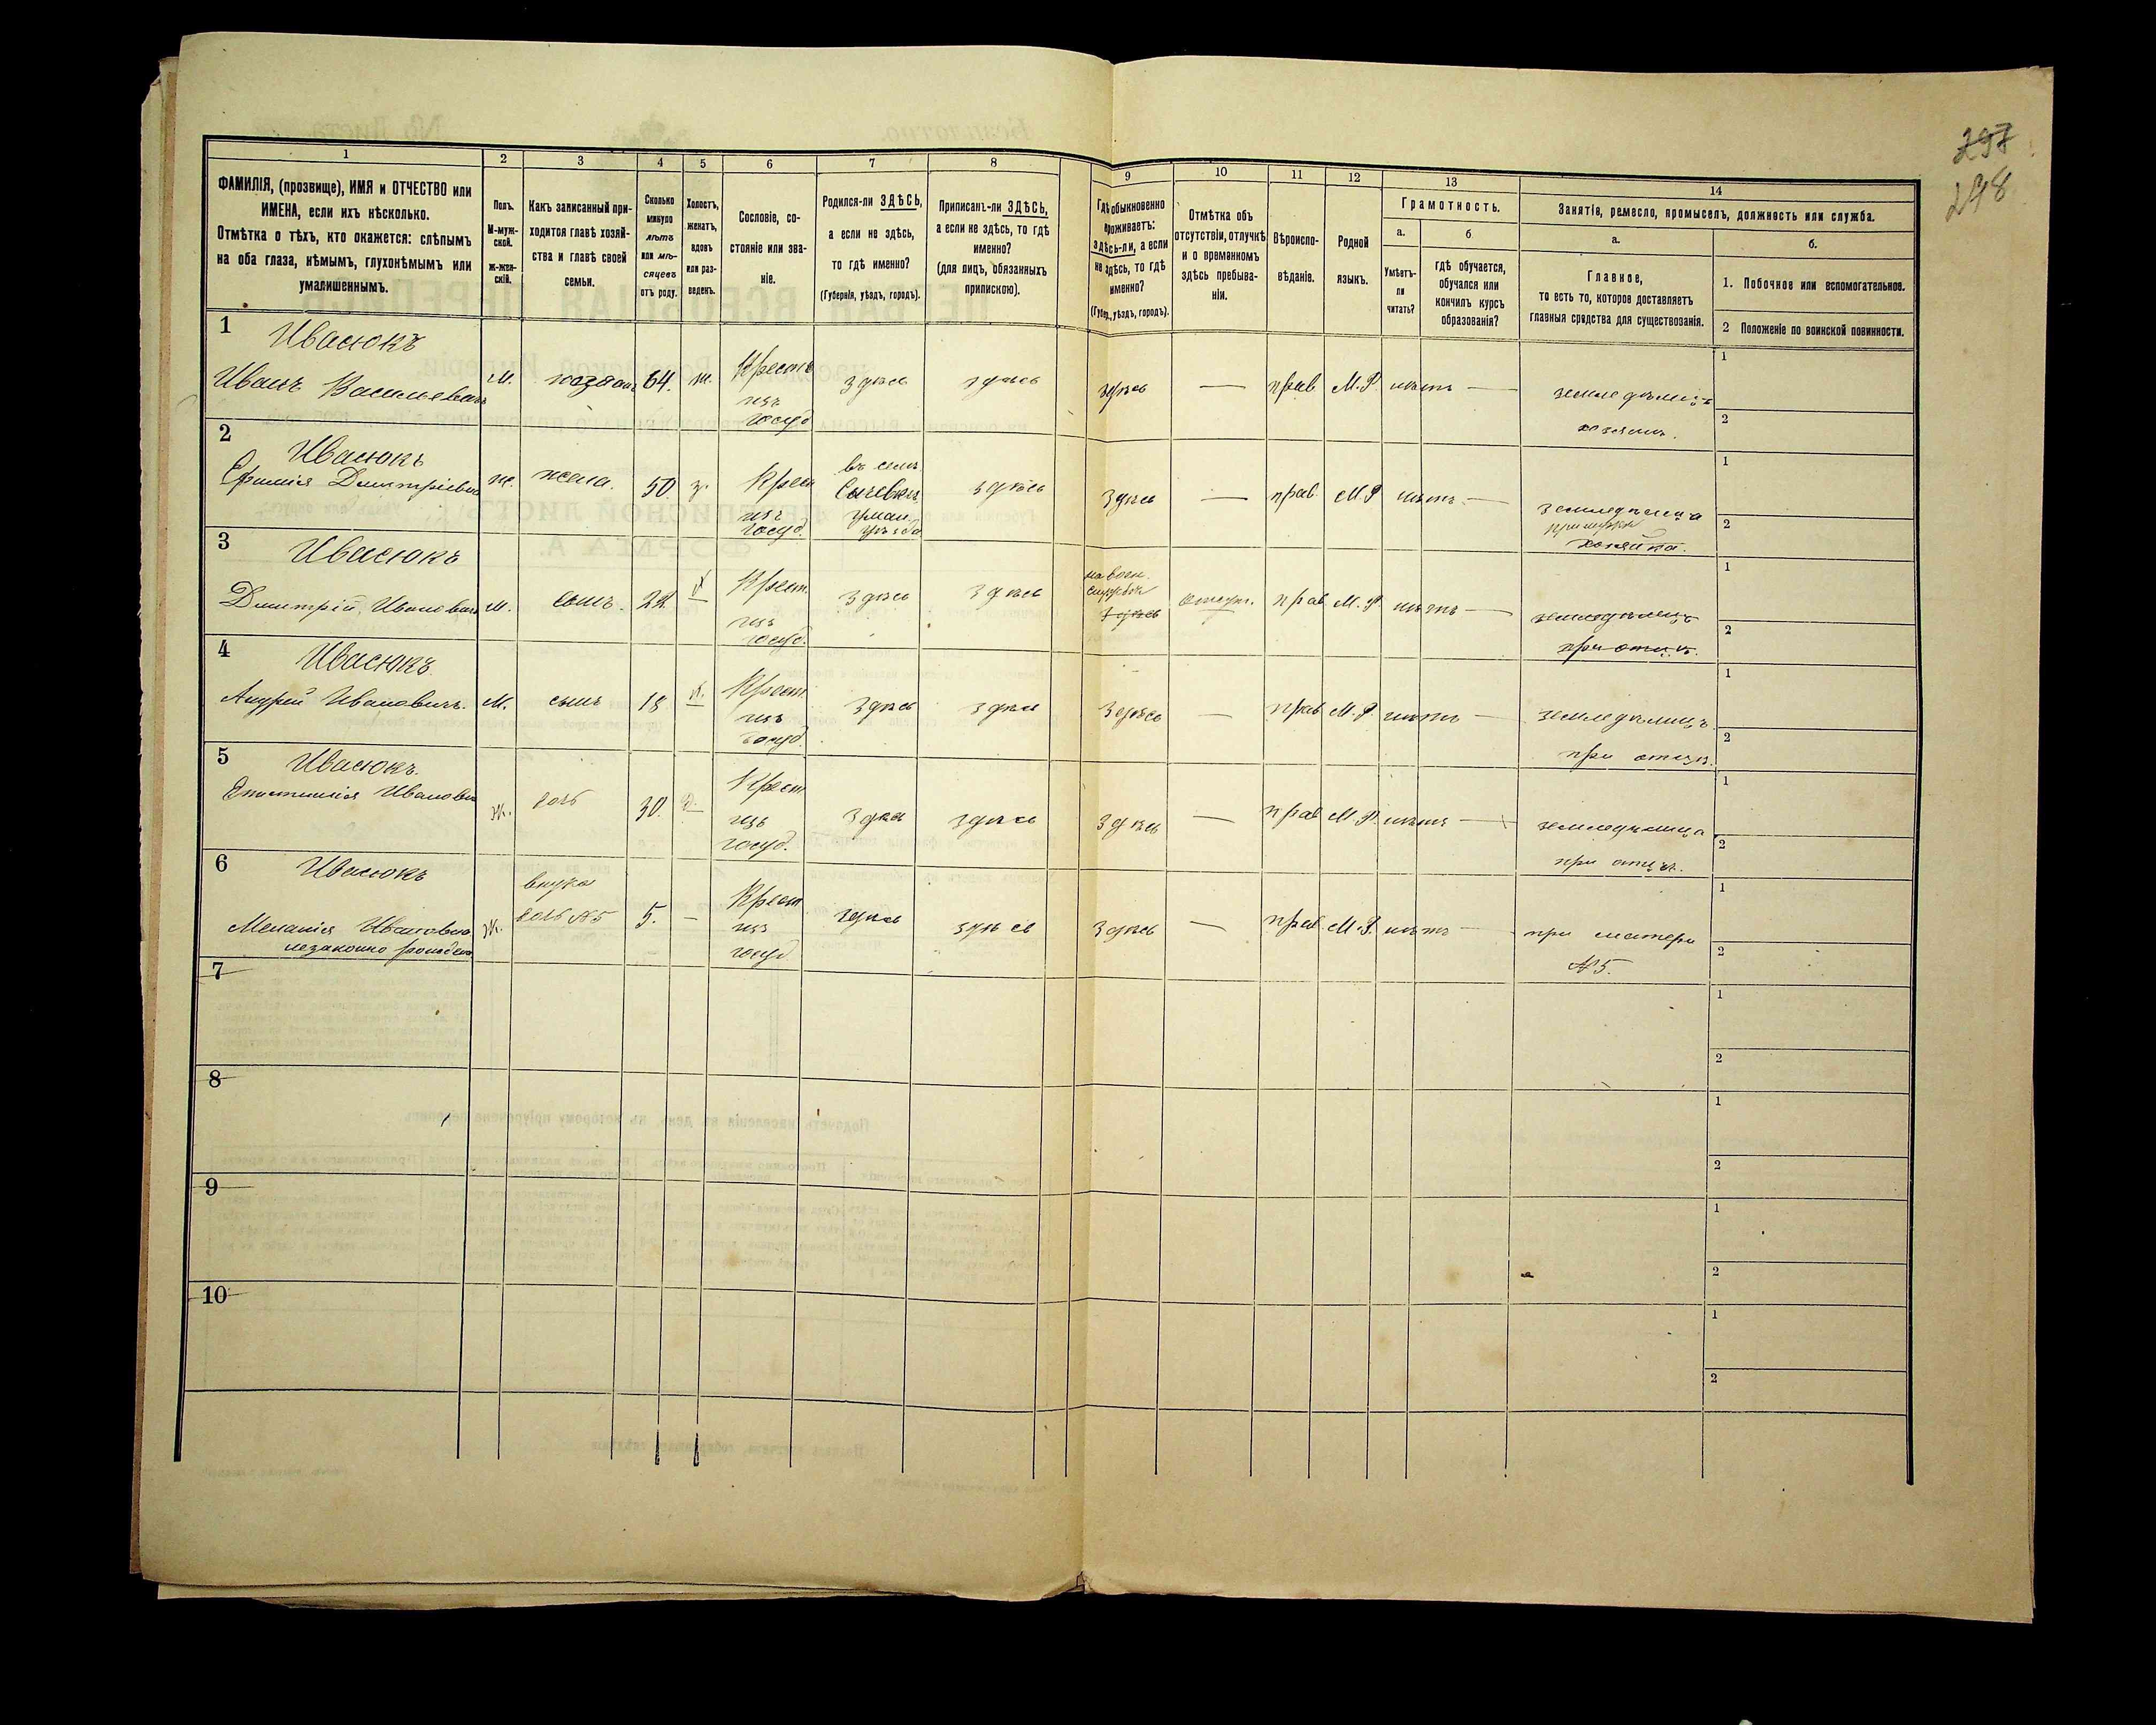 297
298
1
2
3
4
5
6
7
8
9
10
11
12
13
14
ФАМИЛІЯ, (прозвище), ИМЯ и ОТЧЕСТВО или
ИМЕНА, если ихъ нѣсколько.
Отмѣтка о тѣхъ, кто окажется: слѣпымъ
на оба глаза, нѣмымъ, глухонѣмымъ или
умалишеннымъ.
Полъ.
М-муж-
ской.
Ж-жен-
скій.
Какъ записанный при-
ходится главѣ хозяй-
ства и главѣ своей
семьи.
Сколько
минуло
лѣтъ
или мѣ-
сяцевъ
отъ роду.
Холостъ,
женатъ,
вдовъ
или раз-
веденъ.
Сословіе, со-
стояніе или зва-
ніе.
Родился-ли ЗДѢСЬ,
а если не здѣсь,
то гдѣ именно?
(Губернія, уѣздъ, городъ).
Приписанъ-ли ЗДѢСЬ,
а если не здѣсь, то гдѣ
именно?
(для лицъ, обязанныхъ
припискою).
Гдѣ обыкновенно
проживаетъ:
здѣсь-ли, а если
не здѣсь, то гдѣ
именно?
(Губер., уѣздъ, городъ).
Отмѣтка объ
отсутствіи, отлучкѣ
и о временномъ
здѣсь пребыва-
ніи.
Вѣроиспо-
вѣданіе.
Родной
языкъ.
Грамотность.
а.
Умѣетъ-
ли
читать?
б.
гдѣ обучается,
обучался или
кончилъ курсъ
образованія?
Занятіе, ремесло, промыселъ, должность или служба.
а.
Главное,
то есть то, которое доставляетъ
главныя средства для существованія.
б.
1. Побочное или вспомогательное.
2 Положеніе по воинской повинности.
1 Ивасюкъ
Иванъ Васильевичъ м. хозяинъ 64. ж. Крест здѣсь здѣсь здѣсь — прав М.Р. нѣтъ — земледѣлецъ 1
изъ
госуд хозяинъ. 2
2 Ивасюкъ въ сел.
Ефимія Дмитріевна ж. жена. 50 з. Крест Сычевкѣ здѣсь здѣсь — прав. М.Р нѣтъ — земледѣлица 1
изъ Уман. при мужѣ
госуд. уѣзда хозяйка. 2
3 Ивасюкъ на воен.
службѣ
Дмитрій Ивановичъ м. сынъ. 22 х Крест. здѣсь здѣсь здѣсь отсут. прав М.Р. нѣтъ — земледѣлецъ 1
изъ
госуд. при отцѣ. 2
4 Ивасюкъ
Андрей Ивановичъ. м. сынъ 18 х. Крест. здѣсь здѣсь здѣсь — прав М.Р. нѣтъ — земледѣлецъ 1
изъ
госуд. при отцѣ. 2
5 Ивасюкъ.
Ивановна ж. дочь 30. Крест здѣсь здѣсь здѣсь — прав М.Р. нѣтъ — земледѣлица 1
изъ
госуд. при отцѣ. 2
6 Ивасюкъ внука
Меланія Ивановна ж. дочь №5 5. — Крест здѣсь здѣсь здѣсь — прав М.Р. нѣтъ — при матери 1
незаконно рожден изъ
госуд №5. 2
7
1
2
8
1
2
9
1
2
10
1
2